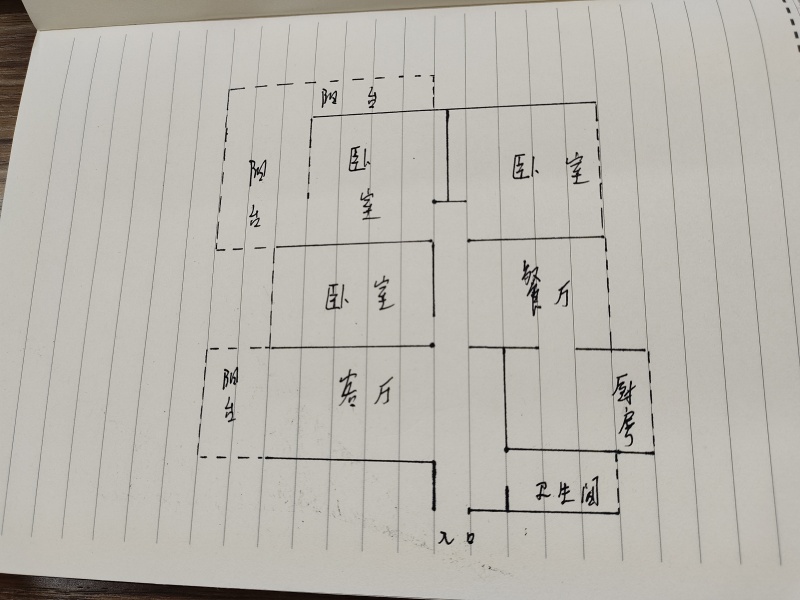 阳台
卧室
卧室
阳台
卧室
餐厅
阳台
客厅
厨房
卫生间
入口